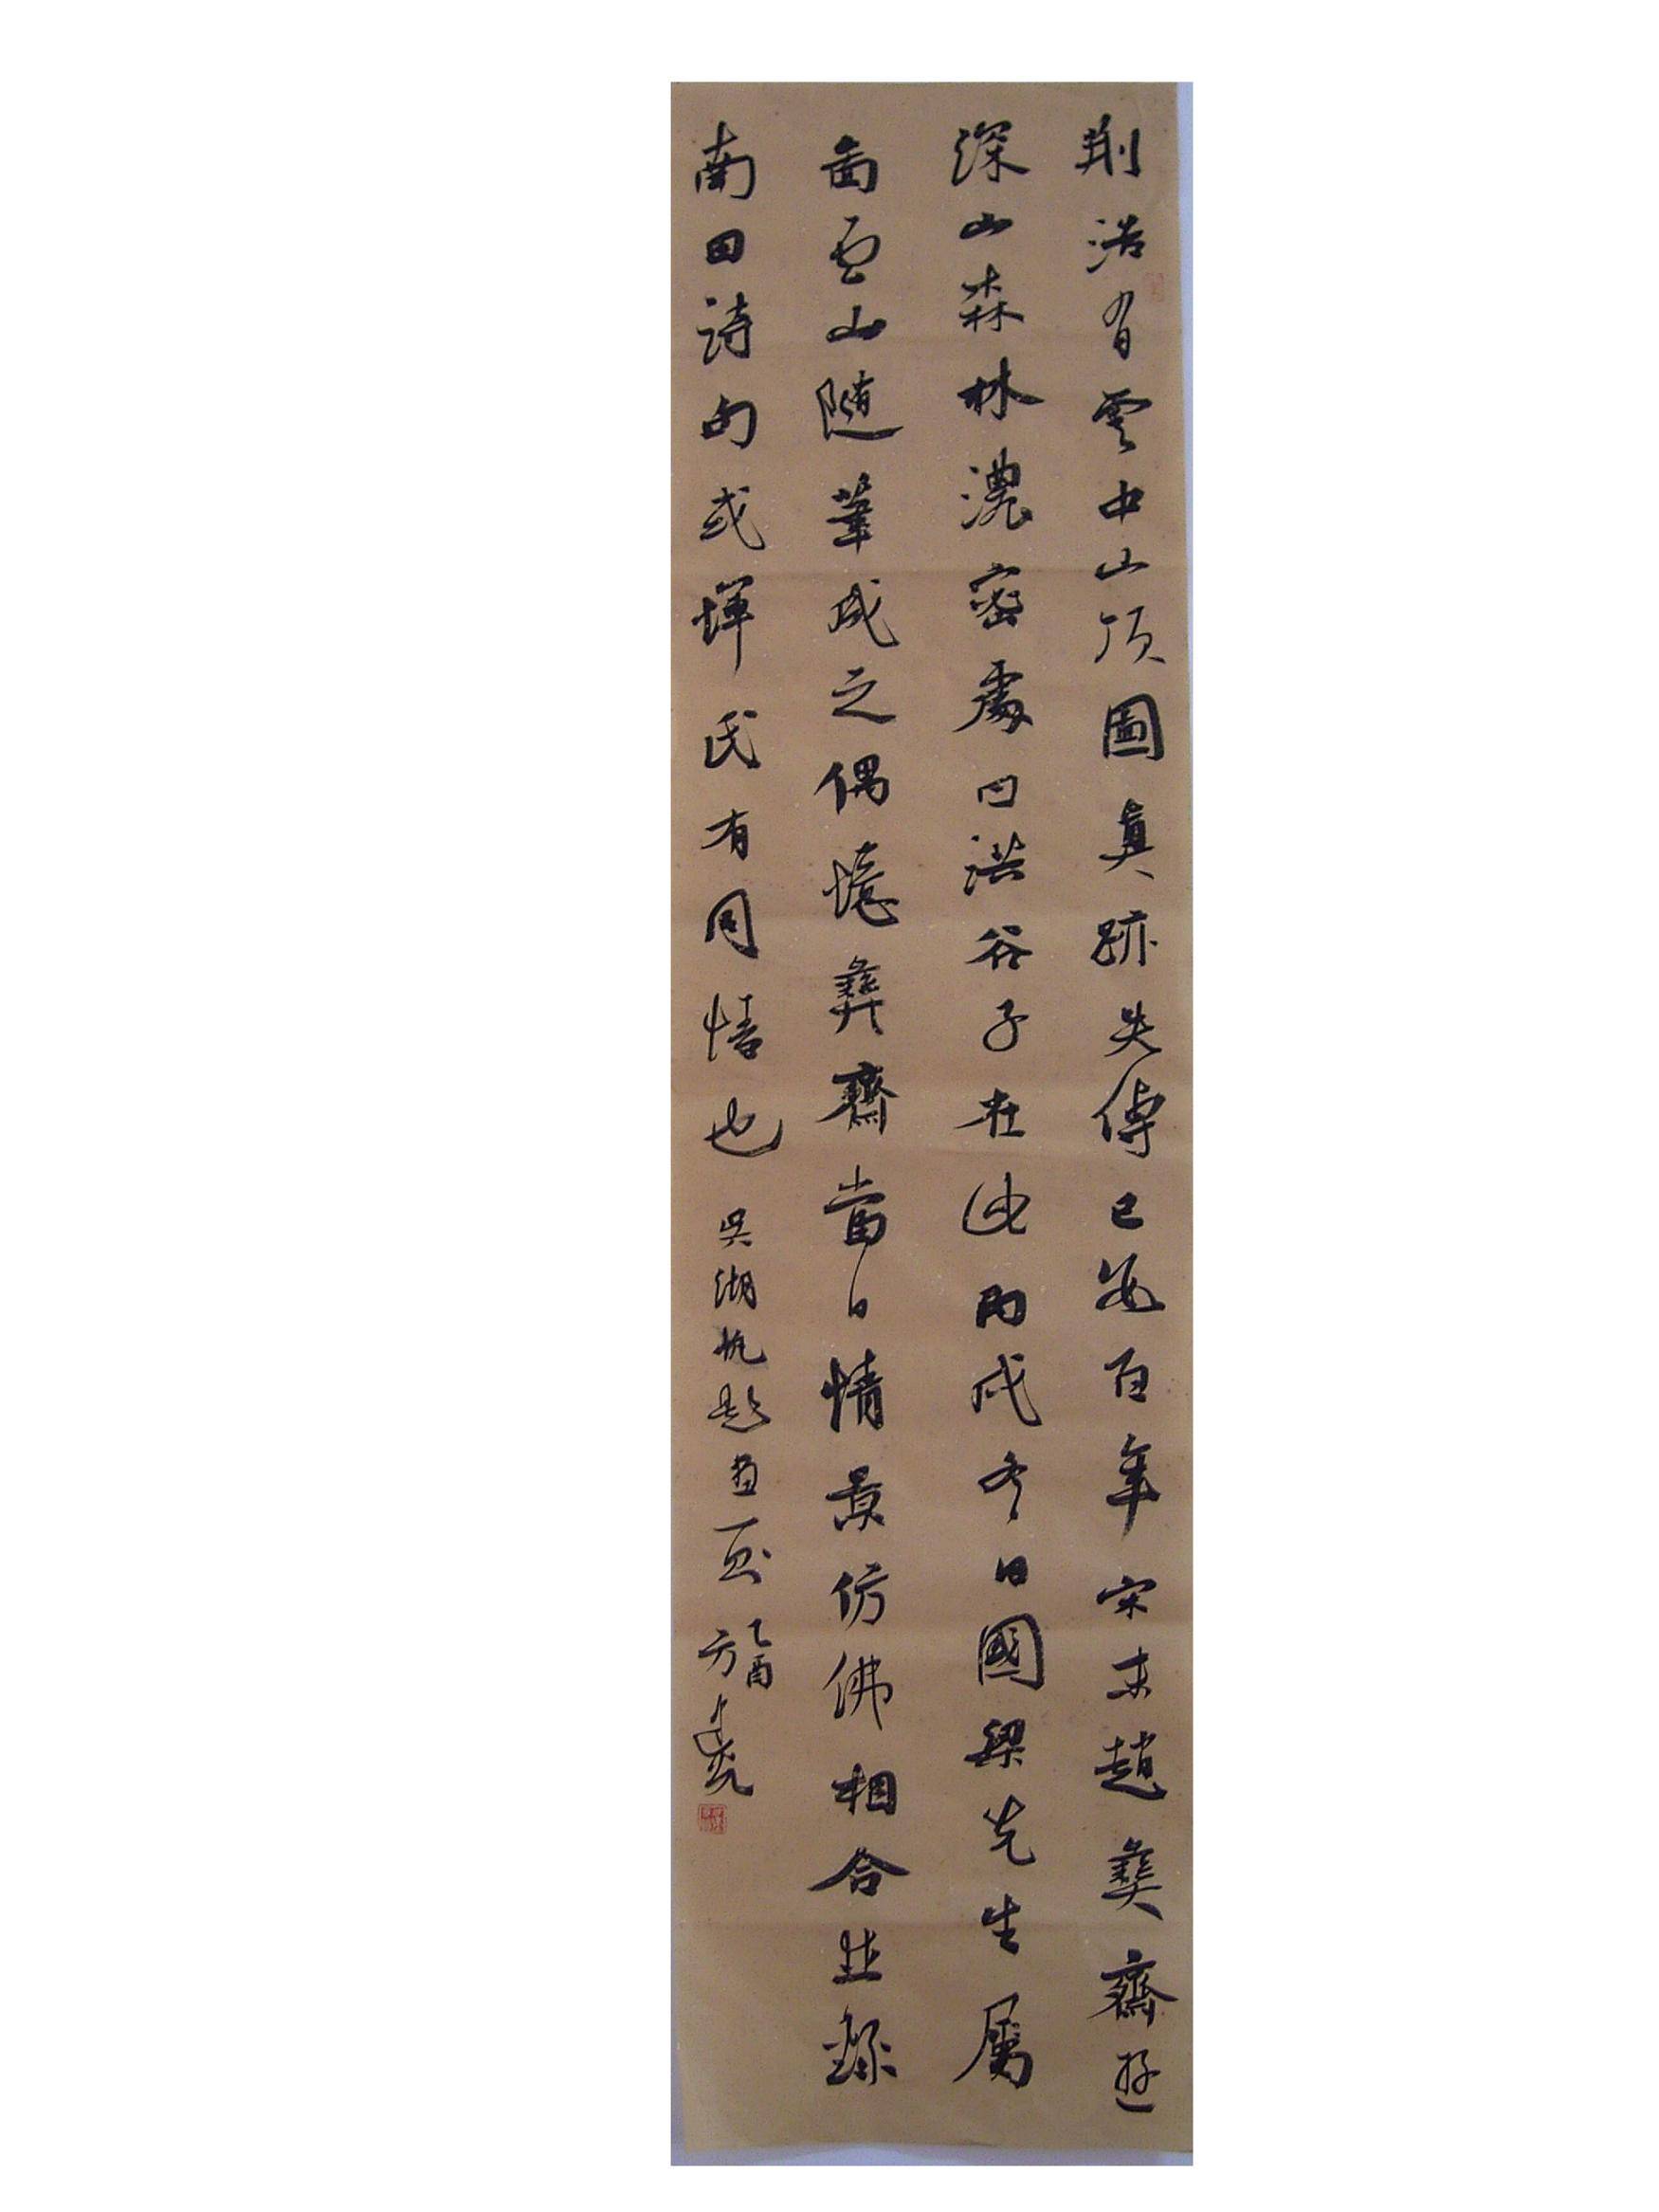 荆浩有雲中山頂圖真跡失傳已數百年宋末趙彝齋遊
深山森林濃密處曰洪谷子在此丙戌冬日國梁先生屬
畫雲山隨筆成之偶憶彝齋當日情景仿佛相合並錄
南田詩句或惲氏有同情也
吳湖帆題畫一則
乙酉
方